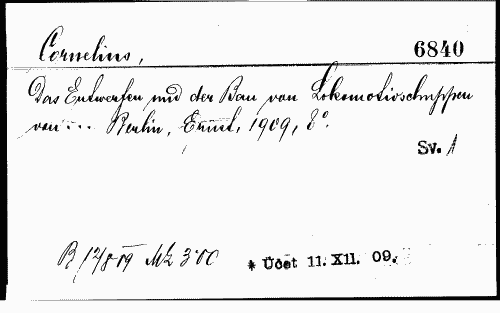 Cornelius,
6840
Das Entwerfen und der Bau von Lokomotivschuppen
von ... Berlin, Ernst, 1909, 8°.
Sv. 1
B 12/8 09 Mk 3·00
* Účet 11. XII. 09.